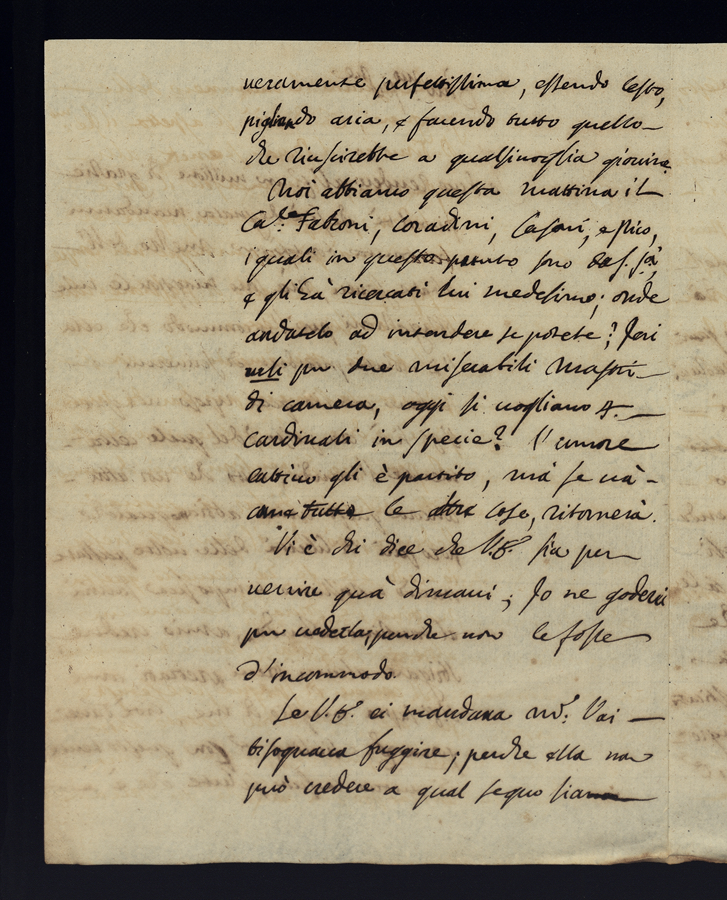 veramente perfettissima, essendo lesto,
pigliando aria, & facendo tutto quello
che riuscirebbe a qualsivoglia giovine.
Noi abbiamo questa mattina il
Ca.le Falconi, Coradini, Casoni, e Pico,
i quali in questo punto sono da S. S.tà,
& gli hà ricercati lui medesimo; onde
andatelo ad intendere se potete? Jeri
per due miserabili Mastri
di camera, oggi si vogliano 4.
cardinali in specie? l'umore
cattivo gli è partito, mà se và
le altre cose, ritornerà.
Vi è chi dice che V.S. sia per
venire quà dimani; Jo ne goderei
per vederla, perche non le fosse
d'incommodo.
Se V.S. ci mandava Vai
bisognava fuggire; perche ella non
può credere a qual segno siamo